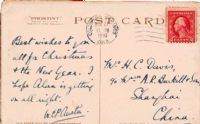 "PHOSTINT"
POST CARD
Best wishes to you
all for Christmas
& the New Year. I
hope Alan is getting
on all right.
M.C.P. Austin
Mr. H. C. Davis,
% Messrs A.R. Burkill & Sons
Shanghai
China.